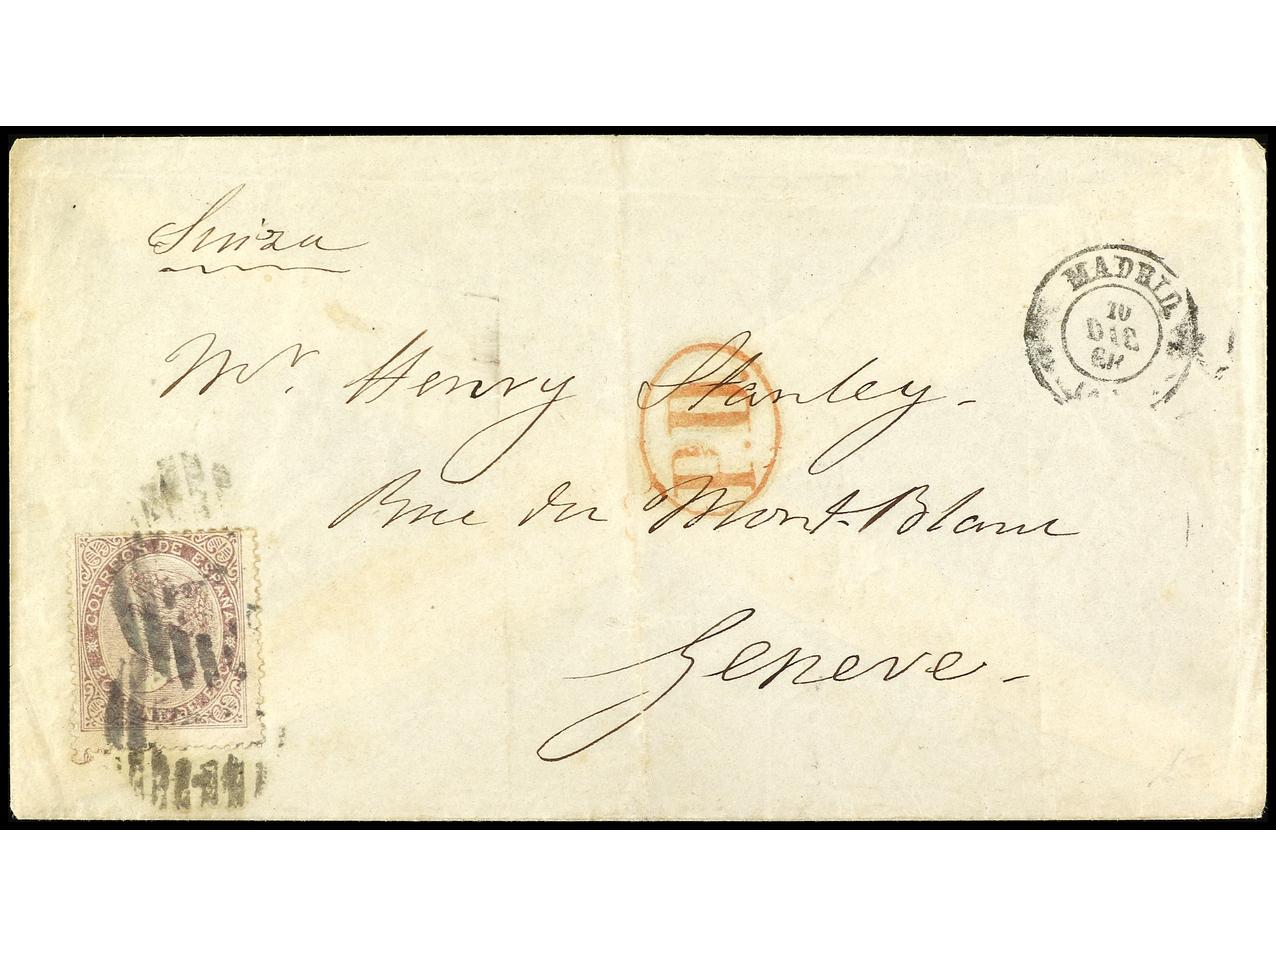 Suiza
MADRID
10
DIC
Mr. Henry Stanley.
P.D.
Rue du Mont-Blanc
Geneve.
CORREOS DE ESPAÑA